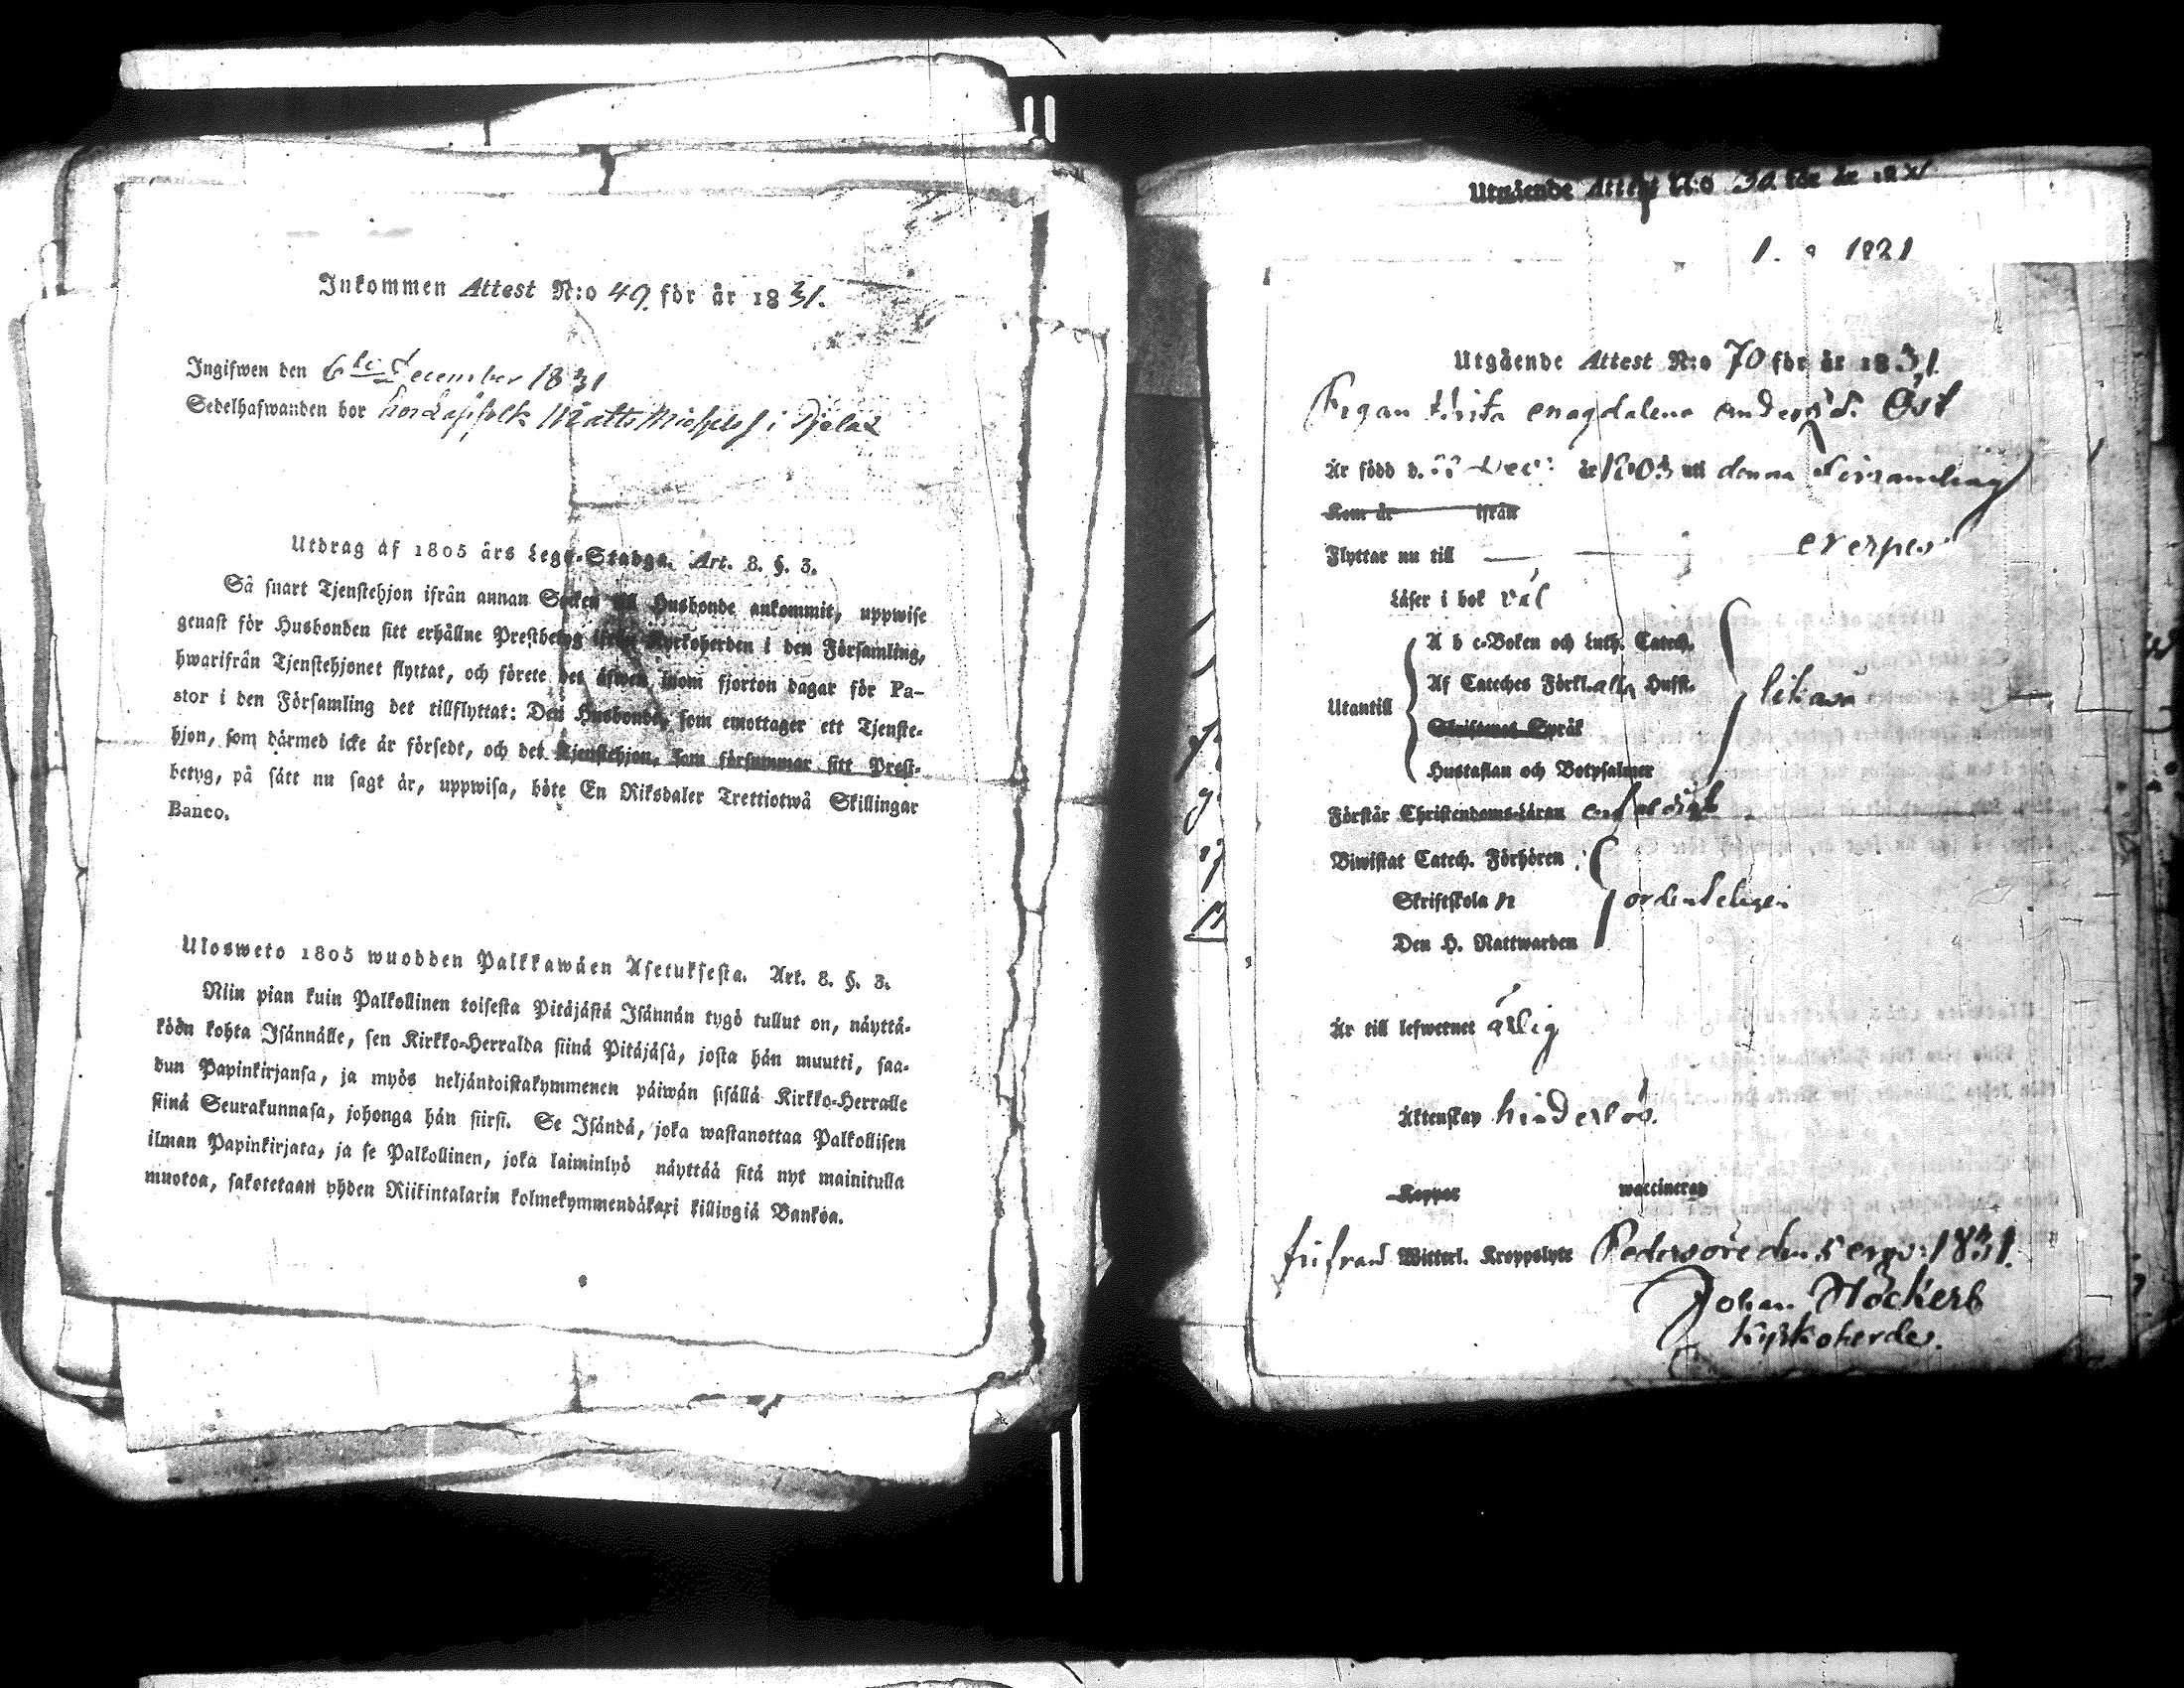 Inkommen Attest N:o 49. för år 1831.
Ingifwen den 6te December 1831
Sedelhafwanden bor hos Matts Michels i
Utdrag af 1805 års Lego-Stadga. Art. 8. §. 3.
Så snart Tjenstehjon ifrån annan Socken till Husbonde ankommit, uppwise
genast för Husbonden sitt erhållne Prestbetyg ifrån Kyrkoherden i den Församling,
hwarifrån Tjenstehjonet flyttat, och förete det äfwen inom fjorton dagar för Pa-
stor i den Församling det tillflyttat: Den Husbonde, som emottager ett Tjenste-
hjon, som därmed icke är försedt, och det Tjenstehjon, som försummar sitt Prest-
betyg, på sätt nu sagt är, uppwisa, böte En Riksdaler Trettiotwå Skillingar
Banco.
Ulosweto 1805 wuodden Palkkawäen Asetuksesta. Art. 8. §. 3.
Niin pian kuin Palkollinen toisesta Pitäjästä Isännän tygö tullut on, näyttä-
kään kohta Isännälle, sen Kirkko-Herralda siinä Pitäjäsä, josta hän muutti, saa-
dun Papinkirjansa, ja myös neljäntoistakymmenen päiwän sisällä Kirkko-Herralle
siinä Seurakunnasa, johonga hän siirsi. Se Isändä, joka wastanottaa Palkollisen
ilman Papinkirjata, ja se Palkollinen, joka laiminlyö näyttää sitä nyt mainitulla
muotoa, sakotetaan yhden Riikintalarin kolmekymmendäkaxi killingiä Bankoa.
Utgående Attest N:o 30 för år
1821
Utgående Attest N:o 70 för år 1831.
Pigan Brita Magdalena Andersd. Öst
Är född d. Dec: år 1803 uti denna Församling
Kom år ifrån
Flyttar nu till
Läser i bok väl
Utantill
A b c-Boken och Luth. Catech.
Af Cateches Förkl. alla Hufst.
Skiftenes Språk
Hustaflan och Botpsalmer
likaså
Förstår Christendoms-läran enfaldigt
Biwistat Catech. Förhören
Skriftskolan
Den H. Nattwarden
ordenteligen
Är till lefwernet ärlig
Äktenskap hinderlös.
Koppor waccinerad
fri från Witterl. Kroppslyte Pedersöre den 5 1831.
Johan Höckert
Kyrkoherde.